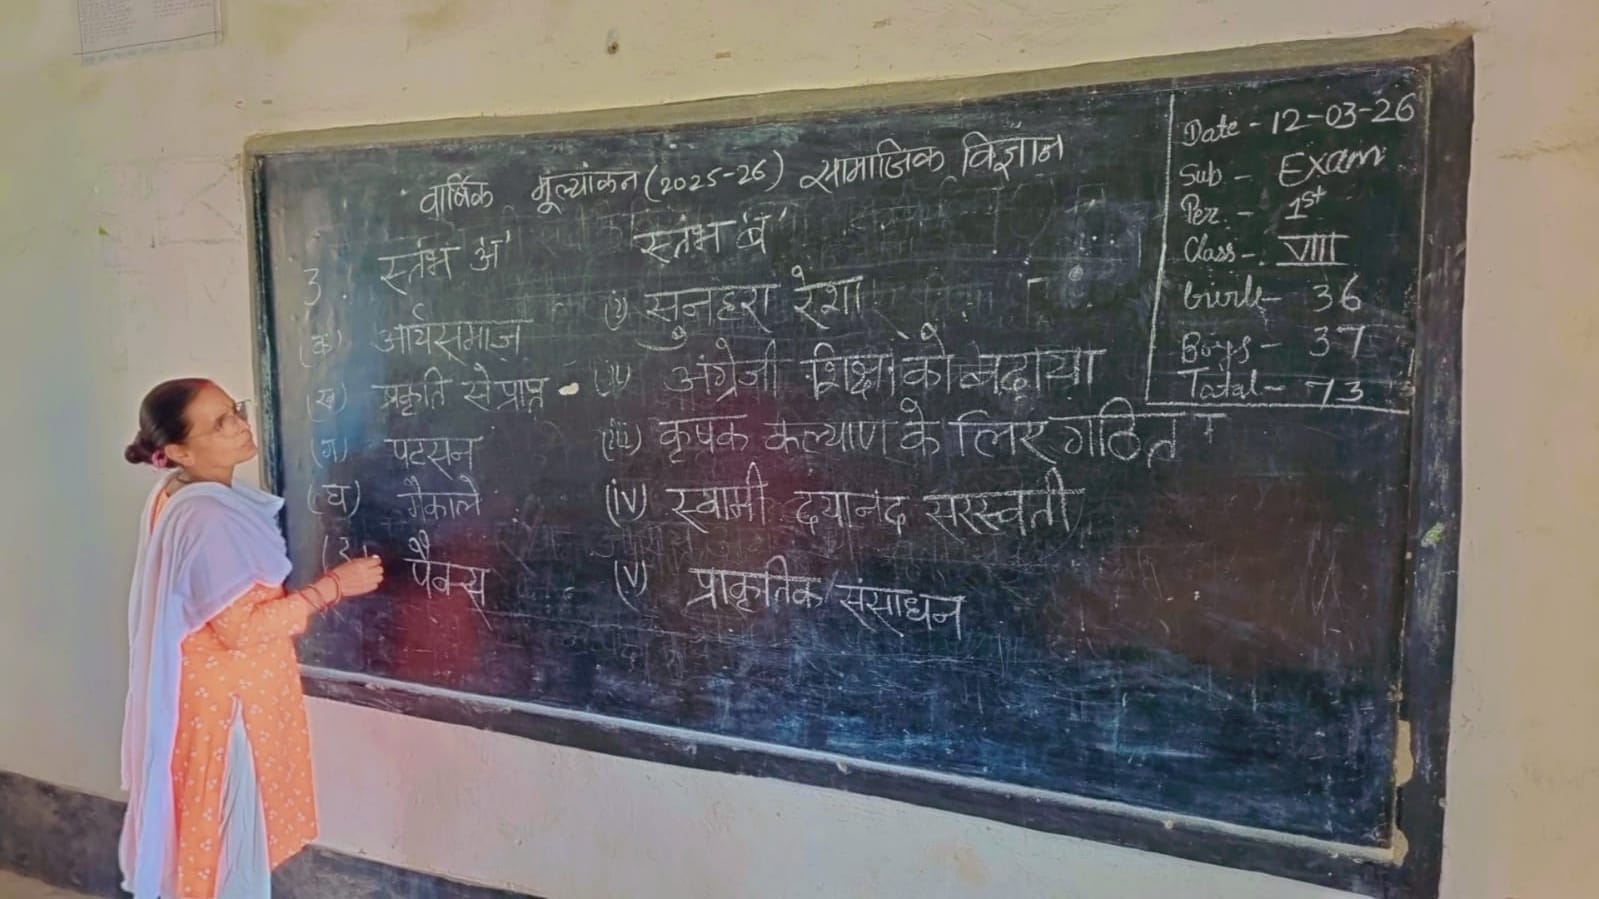 वार्षिक मूल्यांकन (2025-26) सामाजिक विज्ञान
3. स्तंभ 'अ' स्तंभ 'ब'
(क) आर्यसमाज (i) सुनहरा रेशा
(ख) प्रकृति से प्राप्त (ii) अंग्रेजी शिक्षा को बढ़ाया
(ग) पटसन (iii) कृषक कल्याण के लिए गठित
(घ) मैकाले (iv) स्वामी दयानंद सरस्वती
पैक्स (v) प्राकृतिक संसाधन
Date - 12-03-26
Sub - Exam
Per. - 1st
Class - VIII
Girls - 36
Boys - 37
Total - 73